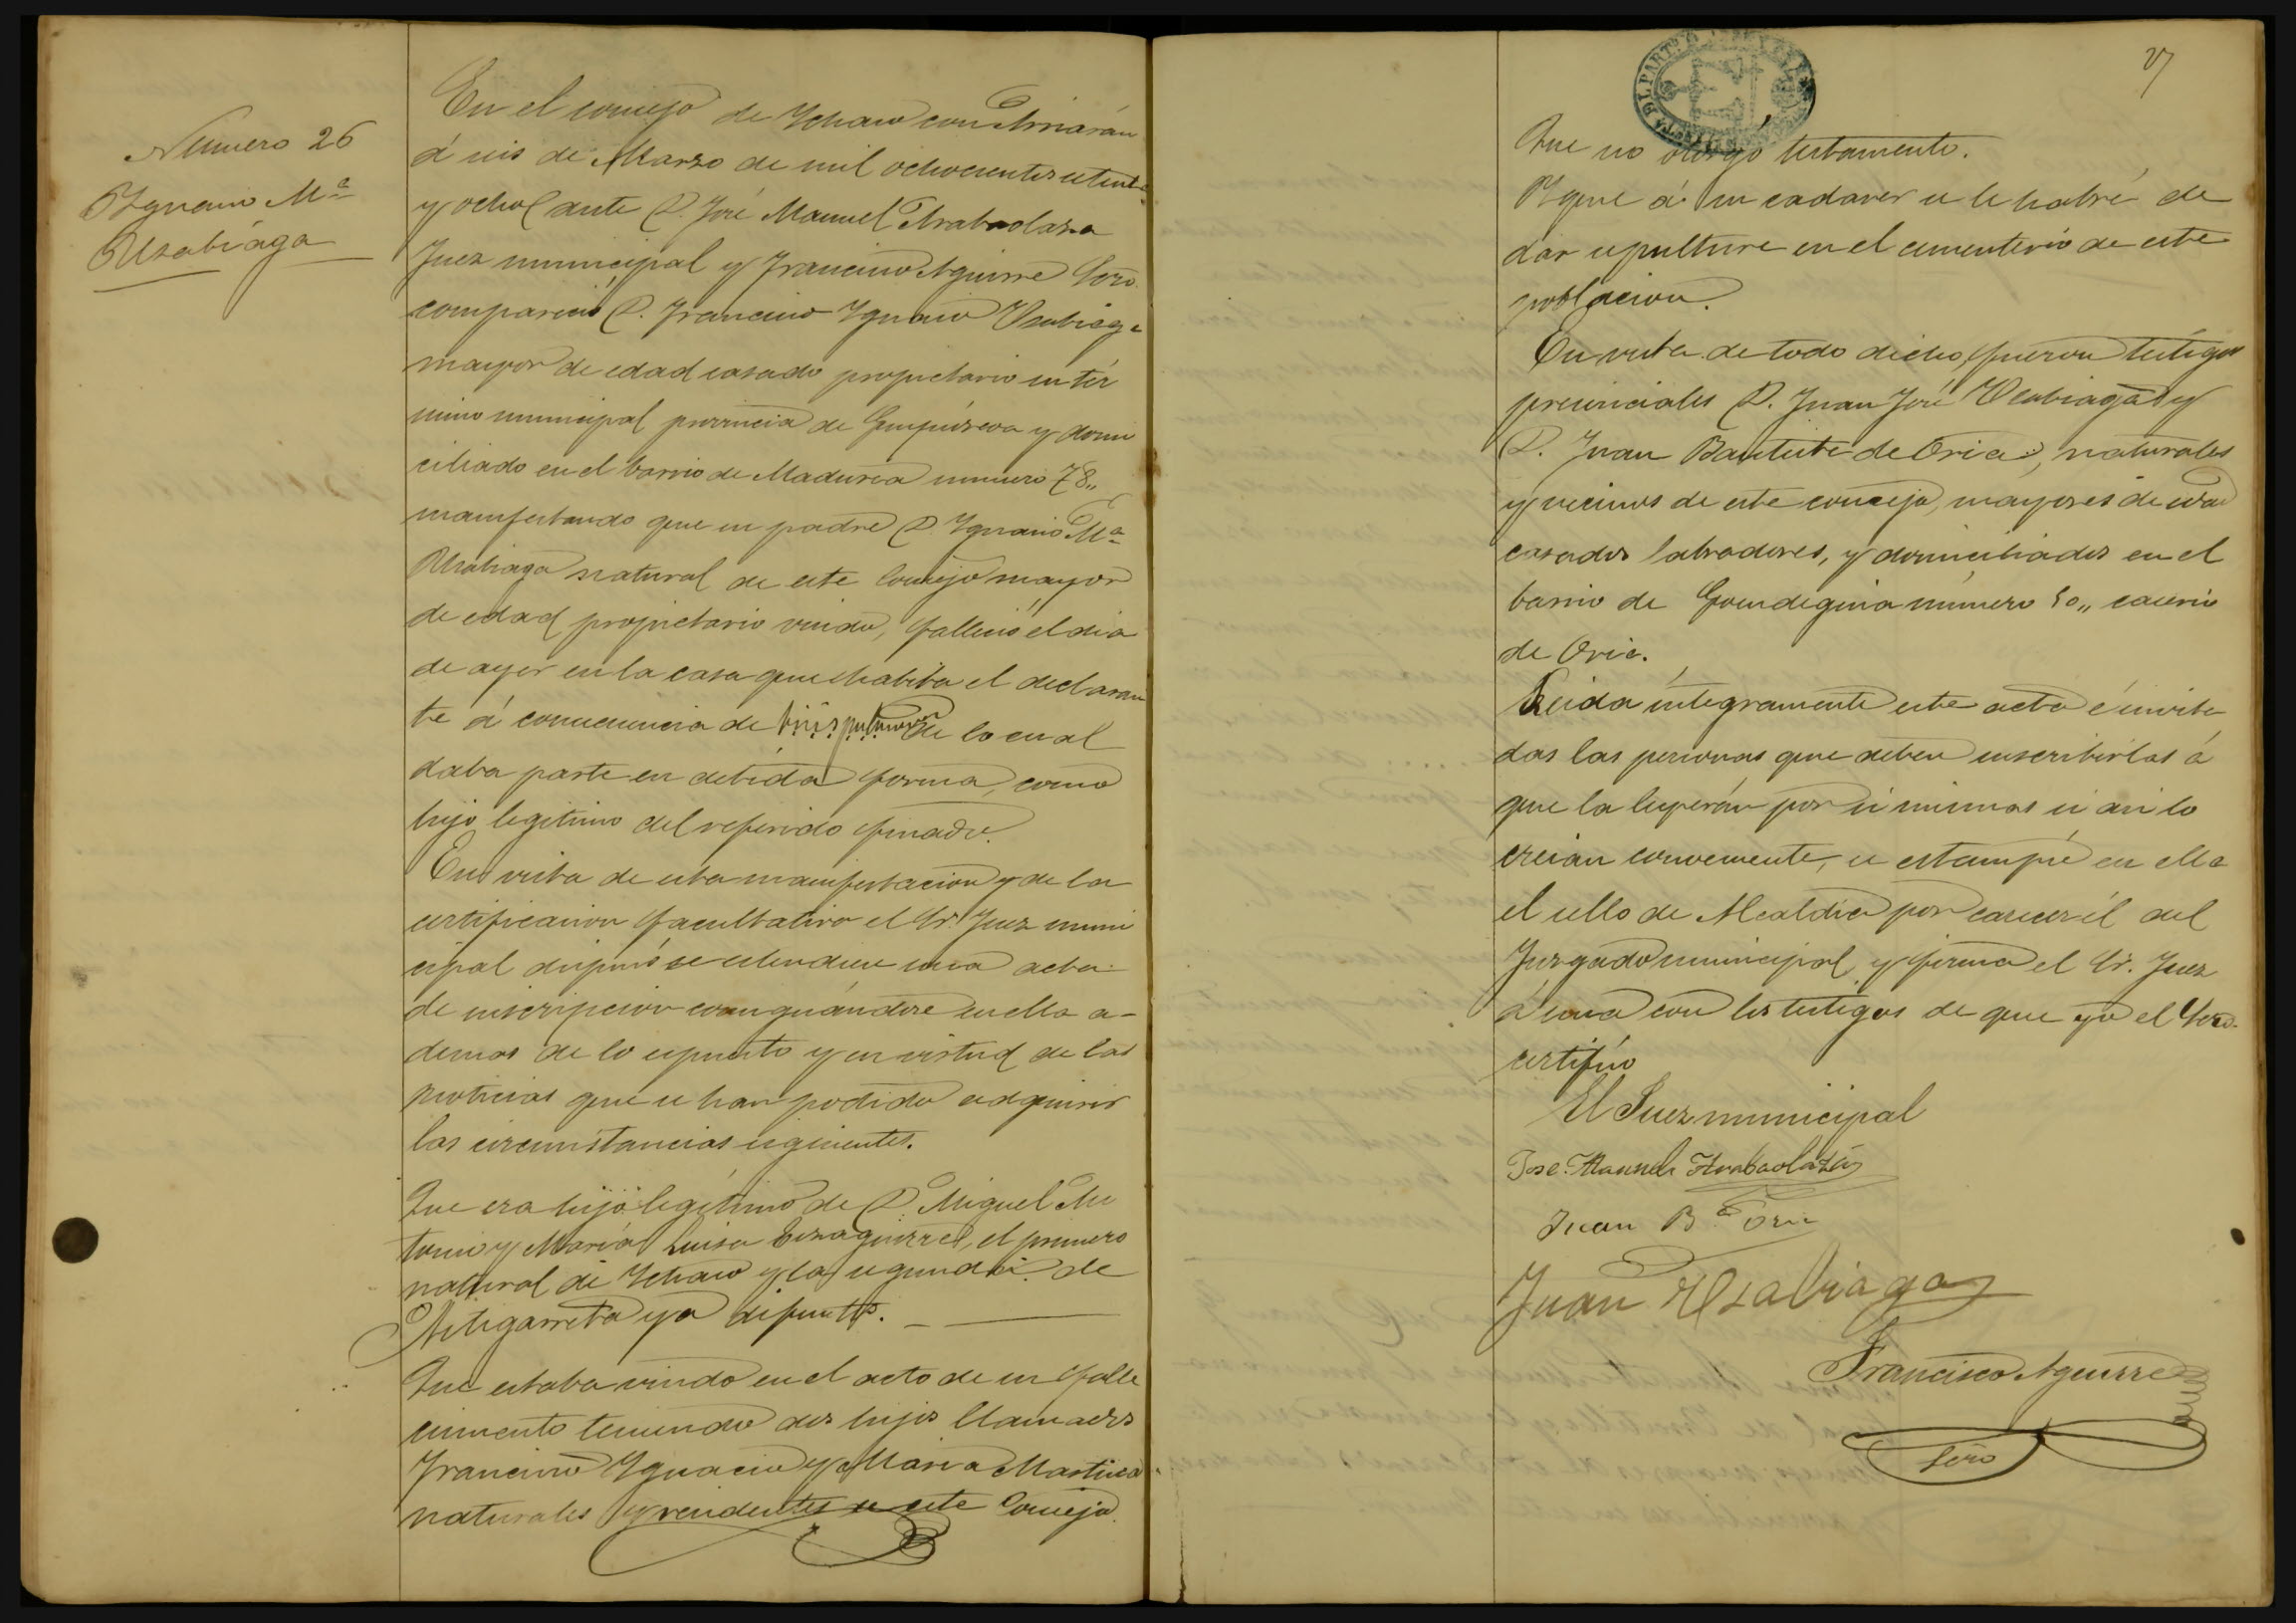 Número 26
Ygnacio Mª
Usabiaga
En el concejo de Ychaso con Arriarán
á seis de Marzo de mil ochocientos setenta
y ocho ante D. José Manuel Strabaolaza
Juez municipal y Francisco Aguirre Srio
compareció D. Francisco Ygnacio Usabiaga
mayor de edad casado propietario en tér
mino municipal provincia de Guipúzcoa y domi
ciliado en el barrio de Madurea numero 78,,
manifestando que su padre D. Ygnacio Mª
Usabiaga natural de este Concejo mayor
de edad propietario viudo, falleció el dia
de ayer en la casa que habita el declaran
te á consecuencia de tisis pulmonar de lo cual
daba parte en debida forma, como
hijo legitimo del referido finado.
En vista de esta manifestacion y de la
certificacion facultativa el Sr. Juez muni
cipal dispuso se estendiese una acta
de inscripcion consignándose en ella a-
demas de lo espuesto y en virtud de las
noticias que se han podido adquirir
las circunstancias siguientes.
Que era hijo legítimo de D. Miguel An
tonio y María Luisa Eizaguirre, el primero
natural de Ychaso y la segunda de
Astigarreta ya difuntos.
Que estaba viudo en el acto de su falle
cimiento teniendo dos hijos llamados
Francisco Ygnacio y Maria Martina
naturales y residentes en este Concejo.
27
Que no otorgó testamento.
Y que á su cadaver se le habrá de
dar sepultura en el cementerio de esta
poblacion.
En vista de todo dicho, fueron testigos
presenciales D. Juan José Usabiaga y
D. Juan Bautista de Oria, naturales
y vecinos de este concejo, mayores de edad
casados labradores, y domiciliados en el
barrio de número 50,, caserio
de Oria.
Leida íntegramente esta acta é invita
das las personas que deben suscribirlas á
que la leyerán por si mismas si asi lo
creian conveniente, se estampó en ella
el sello de Alcaldia por carecer él del
Juzgado municipal, y firma el Sr. Juez
á una con los testigos de que yo el Srio.
certifico
El Juez municipal
Jose Manuel Strabaolaza
Juan Bª Oria
Juan Usabiaga
Francisco Aguirre
Srio